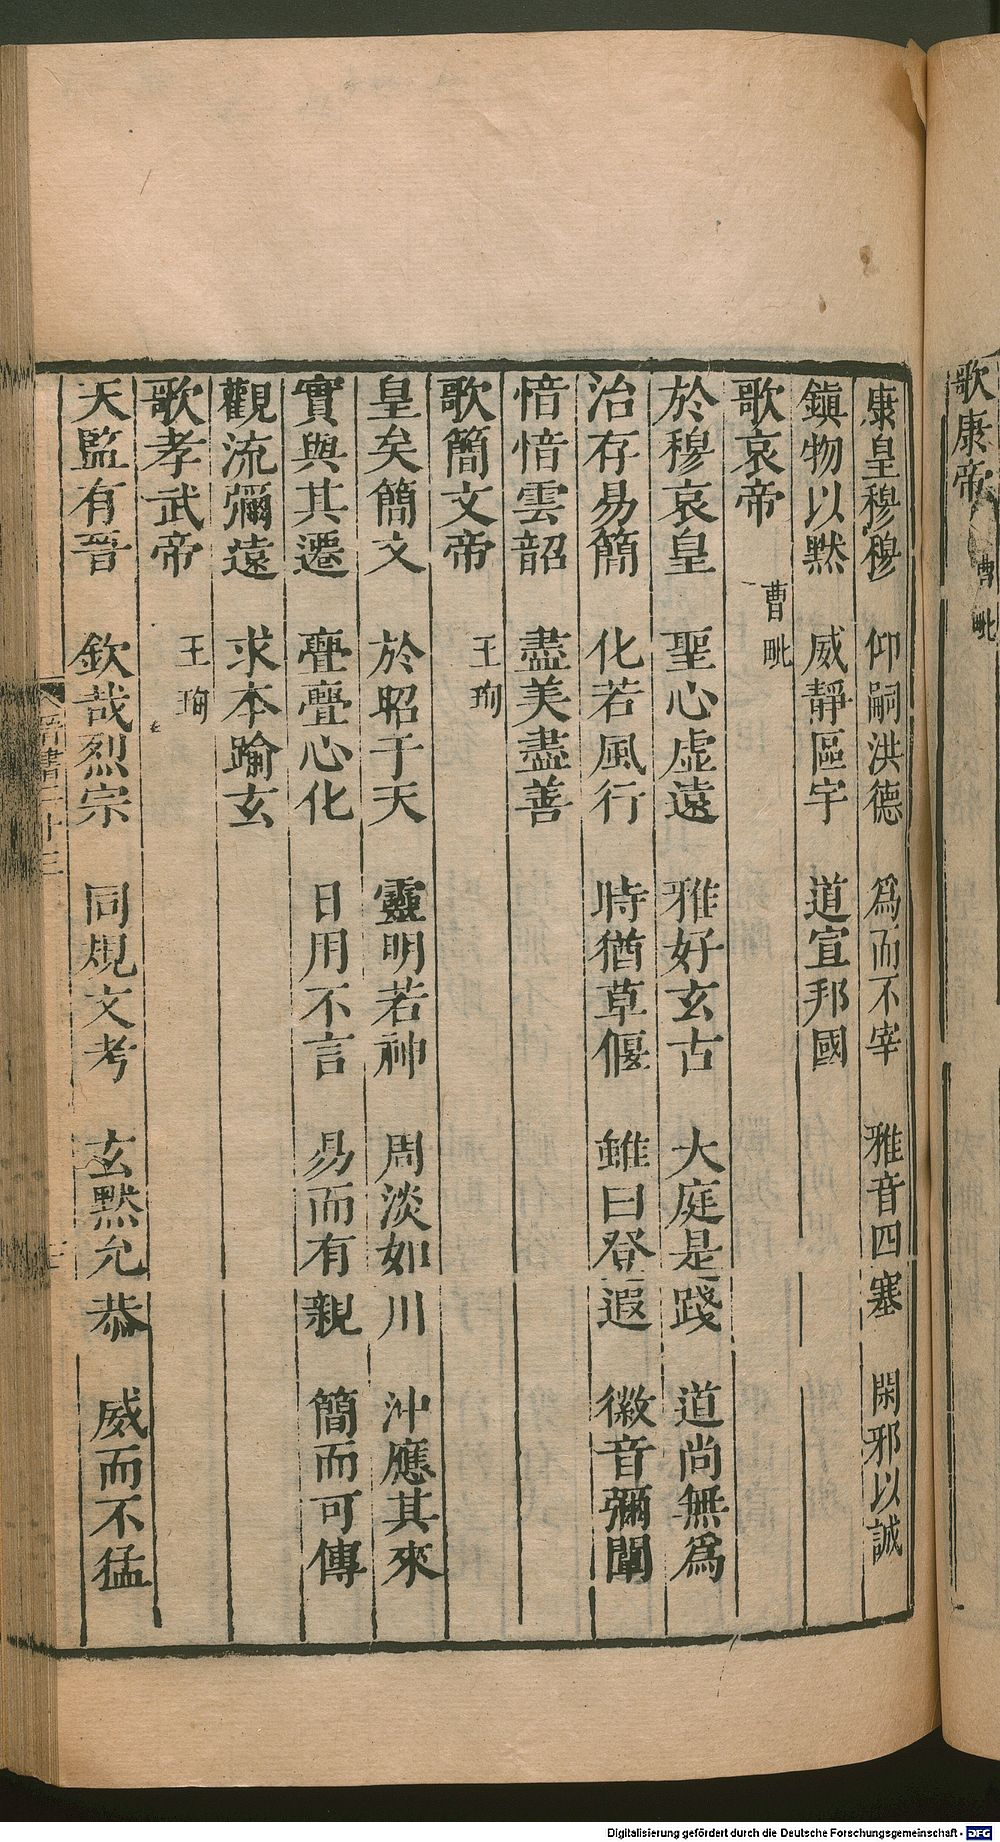 歌康帝 曹毗
康皇穆穆 仰嗣洪德 爲而不宰 雅音四塞 閑邪以誠
鎮物以默 威靜區宇 道宣邦國
歌哀帝 曹毗
於穆哀皇 聖心虚遠 雅好玄古 大庭是踐 道尚無爲
治存易簡 化若風行 時猶草偃 雖曰登遐 徽音彌闡
愔愔雲韶 盡美盡善
歌簡文帝 王珣
皇矣簡文 於昭于天 靈明若神 周淡如川 沖應其來
實與其遷 亹亹心化 日用不言 易而有親 簡而可傳
觀流彌遠 求本踰玄
歌孝武帝 王珣
天監有晉 欽哉烈宗 同規文考 玄默允恭 威而不猛
晉書二十三
Digitalisierung gefördert durch die Deutsche Forschungsgemeinschaft - DFG